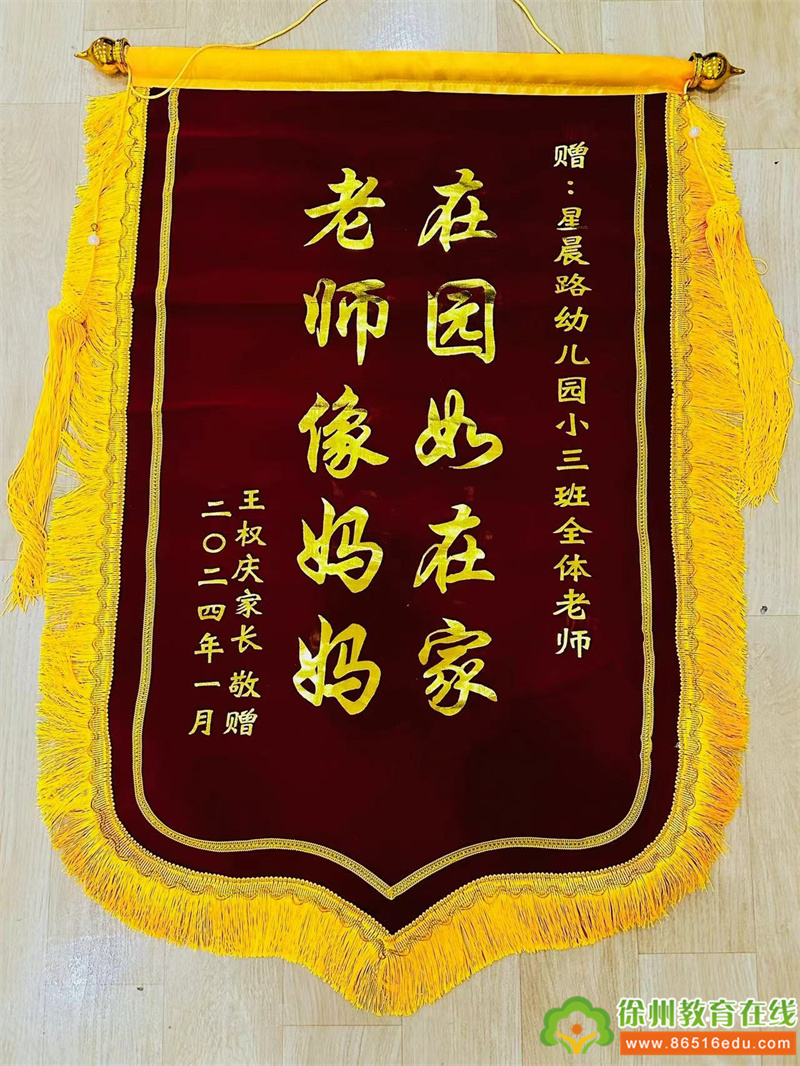 赠：星晨路幼儿园小三班全体老师
在园如在家
老师像妈妈
王权庆家长 敬赠
二〇二四年一月
徐州教育在线
www.86516edu.com